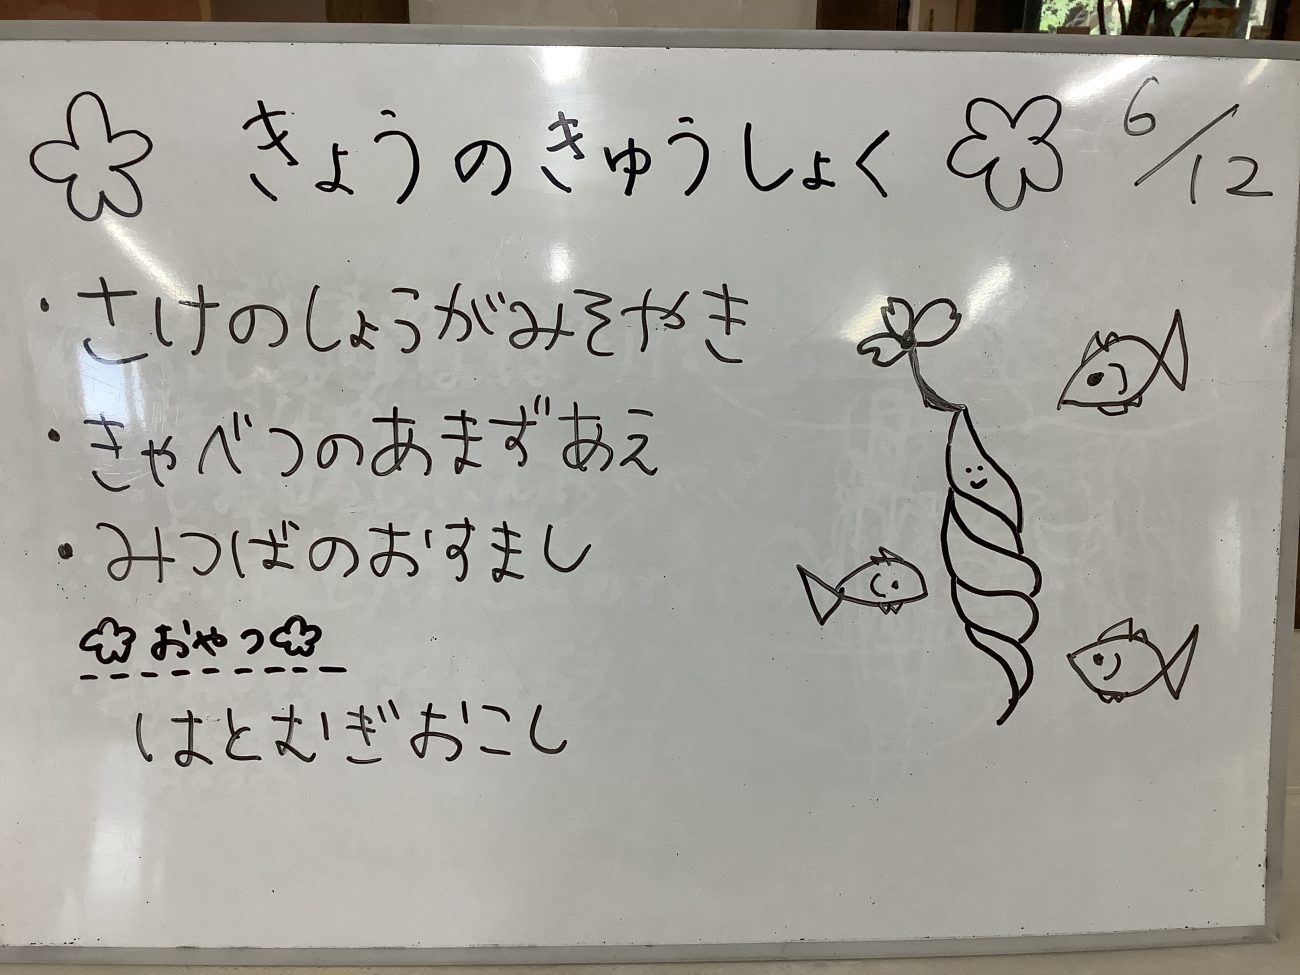 きょうのきゅうしょく 6/12
・さけのしょうがみそやき
・きゃべつのあまずあえ
・みつばのおすまし
おやつ
はとむぎおこし